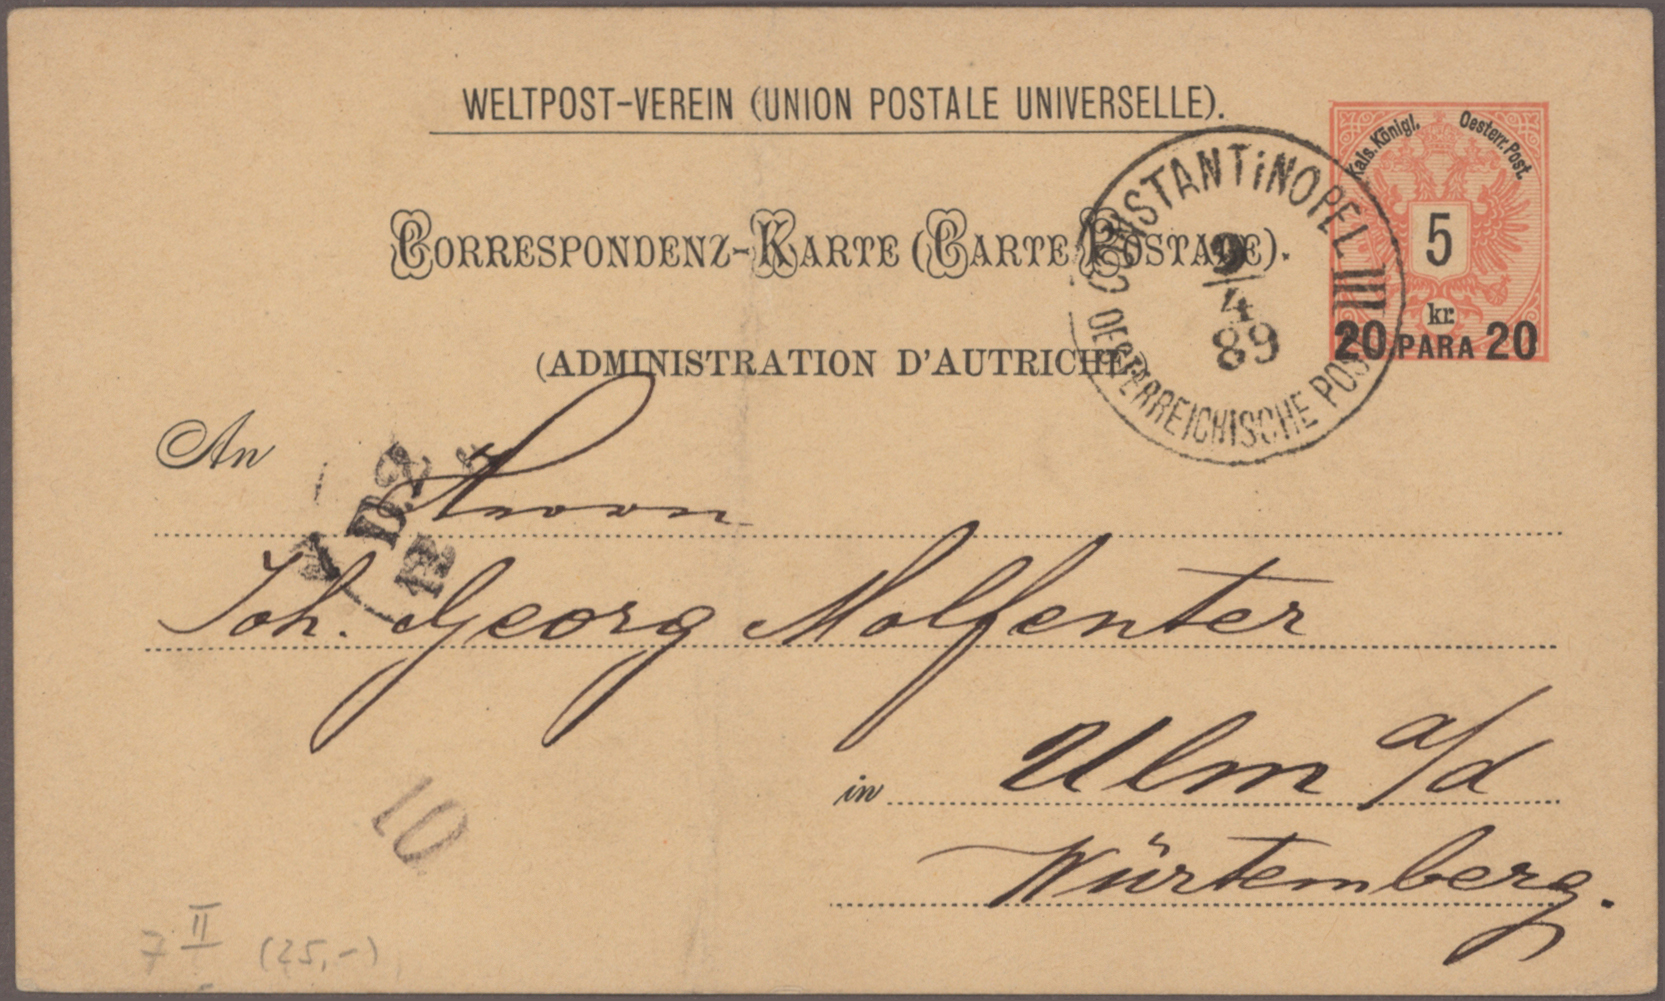 WELTPOST-VEREIN (UNION POSTALE UNIVERSELLE).
Kais. Königl. Oesterr. Post.
5
kr.
20 PARA 20
CORRESPONDENZ-KARTE (CARTE POSTALE).
CONSTANTiNOPEL III
9
4
89
OESTERREICHISCHE POST
(ADMINISTRATION D'AUTRICHE)
An
Herrn
Joh. Georg Molfenter
in Ulm a/d
Würtemberg.
10
7 II (25,-)